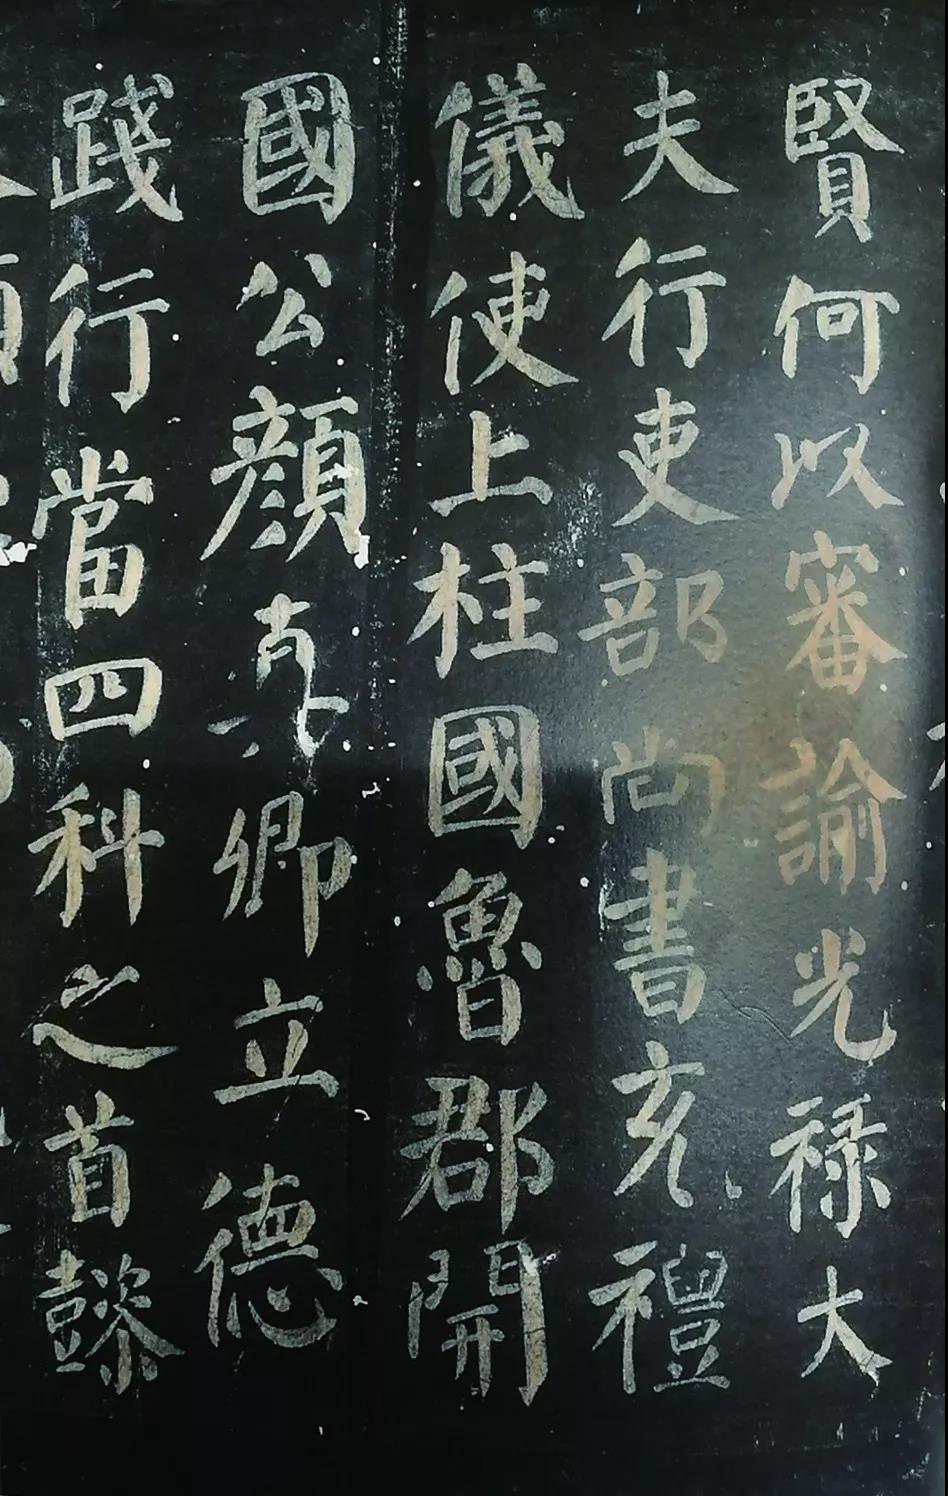 賢何以審諭光祿大
夫行吏部尚書充禮
儀使上柱國魯郡開
國公顏真卿立德
踐行當四科之首懿